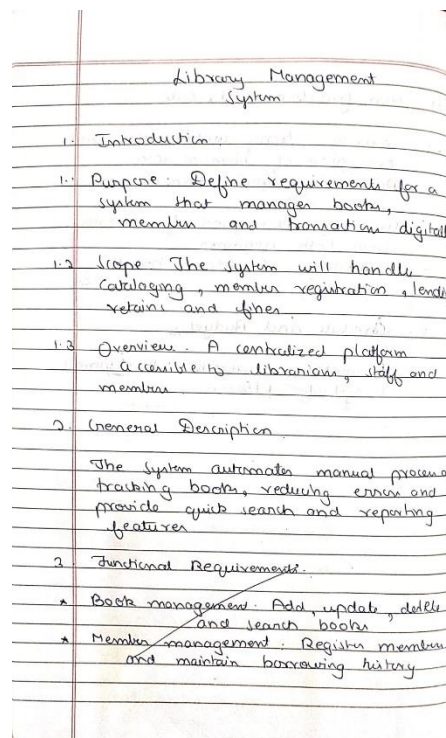 Library Management
System
1. Introduction
1. Purpose. Define requirements for a
system that manages books,
members and transactions digitall
1.2 Scope The system will handle
cataloging, member registration, lendi
retains and fines
1.3 Overview. A centralized platform
accessible to librarians, staff and
members
2. General Description
The system automates manual process
tracking books, reducing errors and
provide quick search and reporting
features
3 Functional Requirements.
* Book management. Add, update, delete
and search books
* Member management. Register members
and maintain borrowing history